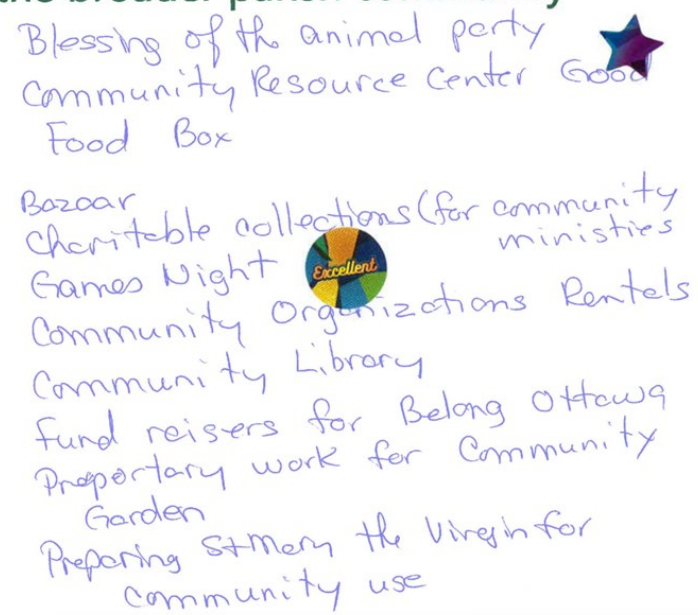 the broader parish community
Blessing of the animal party
Community Resource Center Good
Food Box
Bazaar
Charitable collections (for community
ministies
Games Night
Excellent
Community Organizations Rentals
Community Library
Fund reisers for Belong Ottawa
Preportary work for Community
Garden
Preparing St Mary the Virgin for
community use